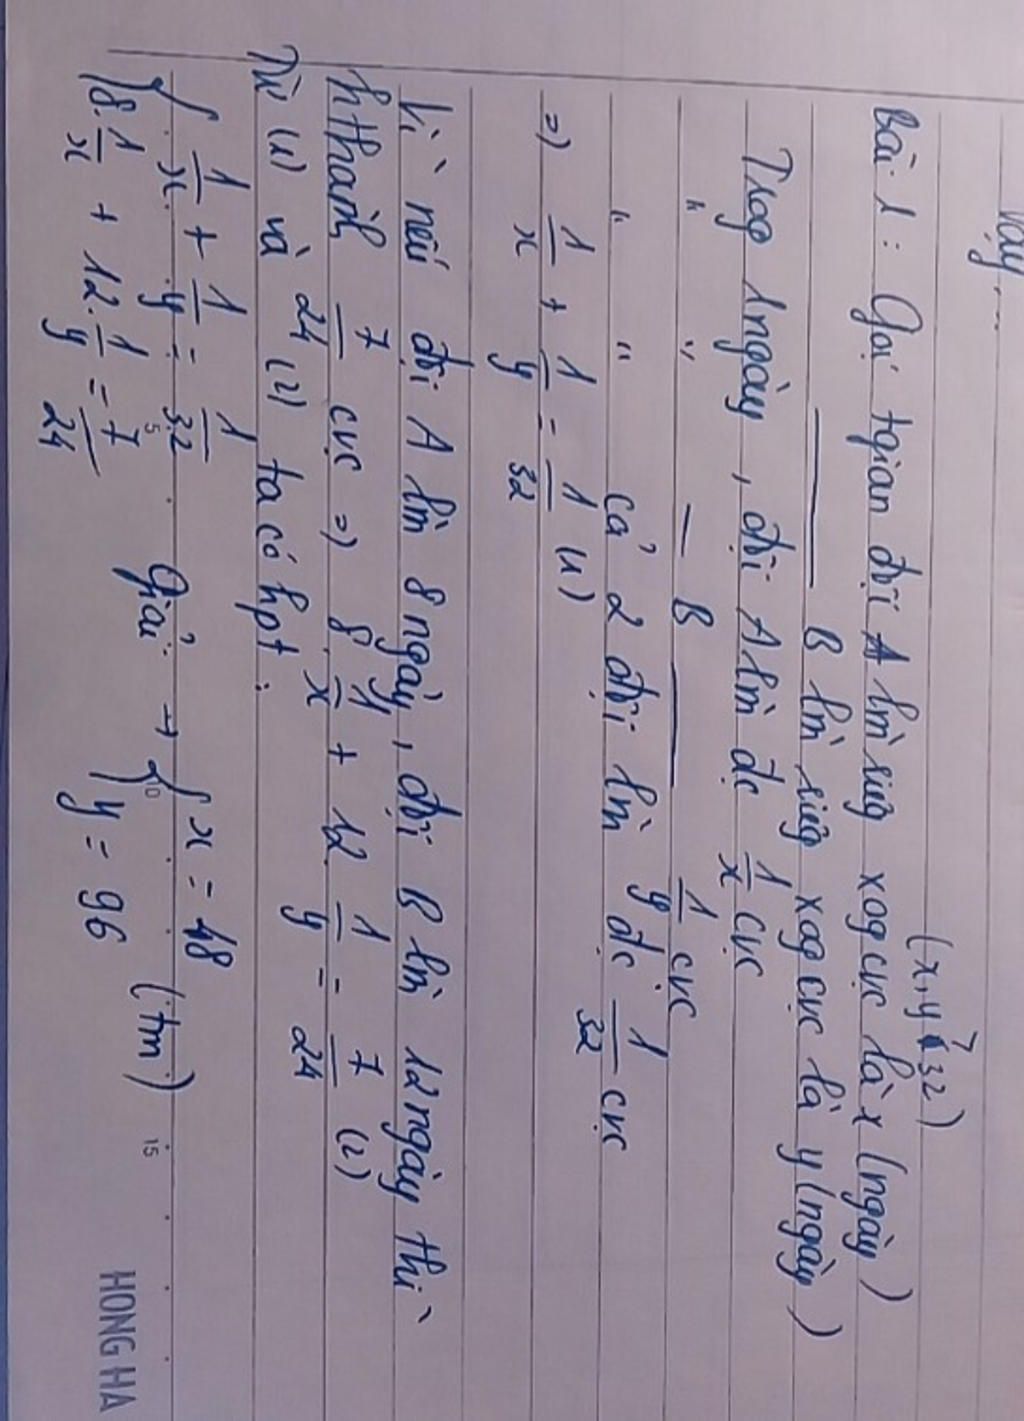 Vậy ...
Bài 1: Gọi tgian đội A lm riêng xog cvc là x (ngày)
(x, y > 32)
——— B lm riêng xog cvc là y (ngày)
Trog 1 ngày, đội A lm đc 1/x cvc
" " — B —— 1/y cvc
" " cả 2 đội lm đc 1/32 cvc
=) 1/x + 1/y = 1/32 (1)
Vì nếu đội A lm 8 ngày, đội B lm 12 ngày thì
hthành 7/24 cvc =) 8. 1/x + 12. 1/y = 7/24 (2)
Từ (1) và (2) ta có hpt:
{ 1/x + 1/y = 1/32
{ 8. 1/x + 12. 1/y = 7/24
Giải → { x = 48
{ y = 96
(tm)
5 10 15
HONG HA